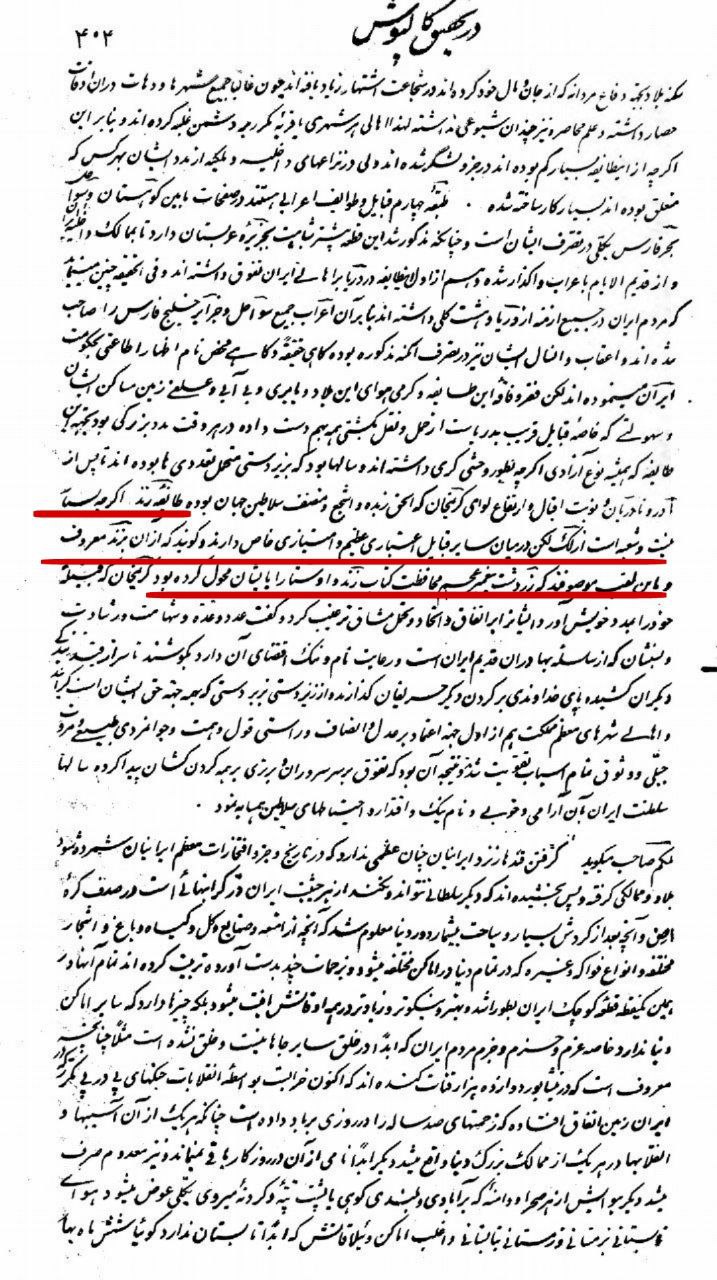 در تحقیق کا لپوش ۴۰۴
سکنه بلاد بجهة دفاع مردانه که از جان و مال خود کرده‌اند در شجاعت اشتهار زیاد یافته‌اند چون غالباً جمیع شهرها و دهات در آن اوقات
حصار داشته و علم محاصره نیز چندان شیوعی نداشته لهذا اهالی هر شهری یا قریه مکرر بر دشمن غلبه کرده‌اند و بنابر این
اگرچه از این طایفه بسیار کم بوده‌اند در جزو لشکر شده‌اند ولی در نزاعهای داخلیه و ملکیه از مدد ایشان بهر کس که
متعلق بوده‌اند بسیار کار ساخته شده . طبقهٔ چهارم قبایل و طوایف اعرابی هستند در صفحات مابین کوهستان و سواحل
بحر فارس بکلی در تصرف ایشان است و چنانکه مذکور شد این قطعه بیشتر شباهت بجزیرهٔ عربستان دارد تا بممالک داخلهٔ ایران
و از قدیم الایام باعراب واگذار شده و هم از اول این طایفه در دریا بر اهالی ایران تفوق داشته‌اند و فی الحقیقه چنین مینماید
که مردم ایران در جمیع ازمنه از دریا دهشت کلی داشته‌اند بنابر آن اعراب جمیع سواحل و جزایر خلیج فارس را صاحب
شده‌اند و اعقاب و انسال ایشان نیز در تصرف امکنه مذکوره بوده گاهی حقیقةً و گاهی محض نام اظهار اطاعتی بحکومت
ایران مینموده‌اند لکن فقر و فاقه این طایفه و گرمی هوای این بلاد و بی‌آبی و علفی زمین مساکن ایشان
و سهولتی که خاصه قبایل قرب بدریاست از حمل و نقل بکشتی بهم دست داده در هر وقت مدد بزرگی بود بجهة این
طایفه که همیشه نوع آزادی اگرچه بطور وحشی‌گری داشته‌اند و سالها بود که بزیردستی متحمل تعدی‌ها بوده‌اند تا پس از
آذر و نادریان و نوبت اقبال و ارتفاع لوای کریمخان که الحق زنده و اشجع و منصف سلاطین جهان بوده طائفه زند اگرچه بسیار
نیست و شعبه است از لک لکن در میان سایر قبایل اعتباری عظیم و امتیازی خاص دارند و گویند که از آن بزند معروف
و باین لقب موصوفند که زردشت پیغمبر عجم محافظت کتاب زند و اوستا را بایشان محول کرده بود کریمخان که قبیلهٔ
خود را مدد خویش آورد و ایشانرا بر اتفاق و اتحاد و تحمل مشاق ترغیب کرد و گفت عدد و عده و شهامت و رشادت
و نسبشان که از سلسله بهادران قدیم ایران است و رعایت نام و ننگ اقتضای آن دارد بکوشند تا سر از قید بندگی
دیگران کشیده پای خداوندی بر گردن دیگر حریفان گذارند و از زیردستی بزبردستی که همه جهة حق ایشان است گرایند
و اهالی شهرهای معظم مملکت هم از اول جهة اعتماد بر عدل و انصاف و راستی قول و همت و جوانمردی طبیعی و مروت
جبلی و وثوق تمام اسباب تقویت شد و نتیجه آن بود که تفوق بر سروران و برتری بر همه گردن‌کشان پیدا کرده سالها
سلطنت ایران بآن آرامی و خوبی و نام نیک و اقتدار با احتیاطهای سلاطین همپایه نمود .
ملکم صاحب میگوید گرفتن قندهار نزد ایرانیان چنان عظمی ندارد که در تاریخ و جزو افتخارات معظم ایرانیان شمرده شود
بلاد و ممالکی گرفته و پس بخشیده‌اند که دیگر سلطانی نتواند و نکند از هر حیث ایران در گرانبهائی است در صدف کره
ارض و آنچه بعد از گردش بسیار و سیاحت بیشمار دور دنیا معلوم شد که آنچه از امتعه و صنایع و گل و گیاه و باغ و اشجار
مختلفه و انواع فواکه و غیره که در تمام دنیا در اماکن مختلفه میشود و بزحمات چند بدست آورده تربیت کرده‌اند تمام آنها در
همین یکقطعه کوچک ایران بطور اشد و بهتر و نیکوتر و زیادتر در همه اوقاتش یافت میشود بلکه چیزها دارد که سایر اماکن
دنیا ندارد خاصه عزم و حزم و جزم مردم ایران که ابداً در خلق سایر جاها نیست و خلق نشده است مثلاً چنانچه
معروف است که در نیشابور دوازده هزار قنات کنده‌اند که اکنون خرابست بواسطه انقلابات جنگهای پی در پی که در
ایران زمین اتفاق افتاده که زحمتهای صد ساله را در روزی بر باد داده است چنانکه هر یک از آن آسیبها و
انقلابها در هر یک از ممالک بزرگ دنیا واقع میشد دیگر ابداً نامی از آن در روزگار باقی نمیماند و نیز معدوم صرف
میشد و دیگر هوایش از هر صحرا و دامنهٔ که بر آبادی و بلندی کوهی یا پشت تپه و گردنهٔ میروی بکلی عوض میشود هوای
تابستانی بزمستانی و زمستانی بتابستانی و اغلب اماکن و ییلاقاتش که ابداً تابستان ندارد گویا شش ماه بهار